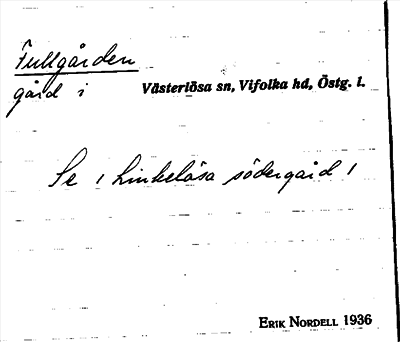 Fullgården
gård i Västerlösa sn, Vifolka hd, Östg. l.
Se 1 Linkelösa södergård 1
ERIK NORDELL 1936